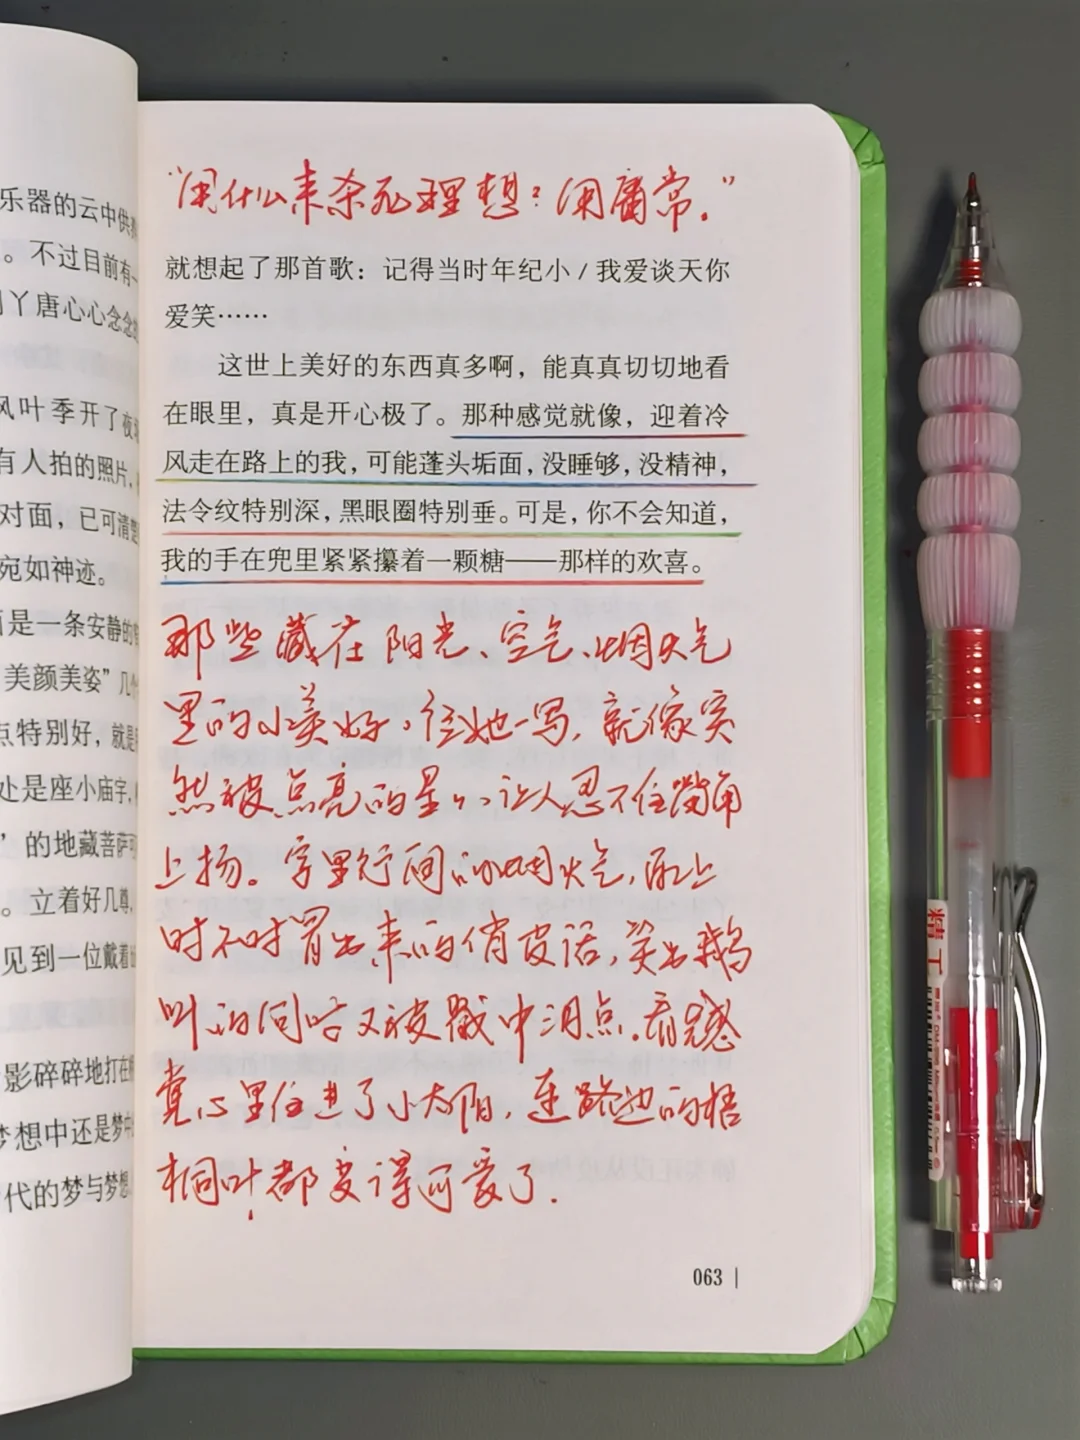 乐器的云中供养
。不过目前有一
丫唐心心念念
风叶季开了夜
有人拍的照片，
对面，已可清楚
宛如神迹。
而是一条安静的
美颜美姿”几个
点特别好，就是
处是座小庙宇，
”的地藏菩萨可
。立着好几尊，
见到一位戴着
影碎碎地打在
梦想中还是梦中
代的梦与梦想
“用什么来杀死理想？用庸常。”
就想起了那首歌：记得当时年纪小/我爱谈天你
爱笑……
这世上美好的东西真多啊，能真真切切地看
在眼里，真是开心极了。那种感觉就像，迎着冷
风走在路上的我，可能蓬头垢面，没睡够，没精神，
法令纹特别深，黑眼圈特别垂。可是，你不会知道，
我的手在兜里紧紧攥着一颗糖——那样的欢喜。
那些藏在阳光、空气、烟火气
里的小美好，经她一写，就像突
然被点亮的星星，让人忍不住嘴角
上扬。字里行间的烟火气，配上
时不时冒出来的俏皮话，笑出鹅
叫的同时又被戳中泪点。看完感
觉心里住进了小太阳，连路边的梧
桐叶都变得可爱了.
063
精工